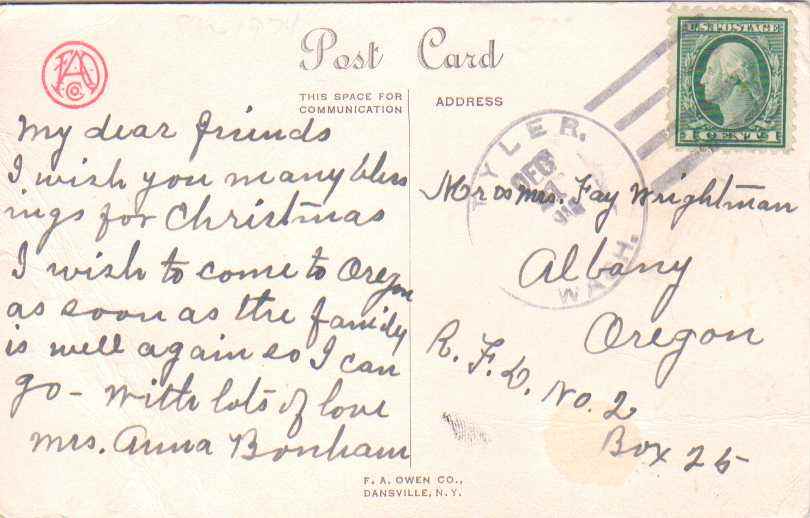 FAO Co
Post Card
THIS SPACE FOR
COMMUNICATION
ADDRESS
U.S. POSTAGE
1 CENT 1
TYLER.
DEC
WASH.
My dear friends
I wish you many bless
ings for Christmas
I wish to come to Oregon
as soon as the family
is well again so I can
go - with lots of love
Mrs. Anna Bonham
Mr & Mrs. Fay Wrightman
Albany
Oregon
R. F. D. No. 2
Box 25
F. A. OWEN CO.,
DANSVILLE, N. Y.